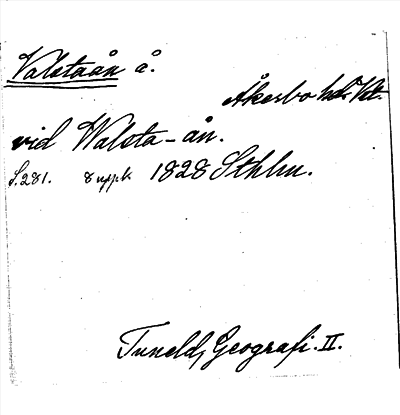 Valstaån å.
Åkerbo hd. Vstm.
vid Walsta-ån.
S. 281. 8 uppl. 1828 Sthlm.
Tuneld, Geografi. II.